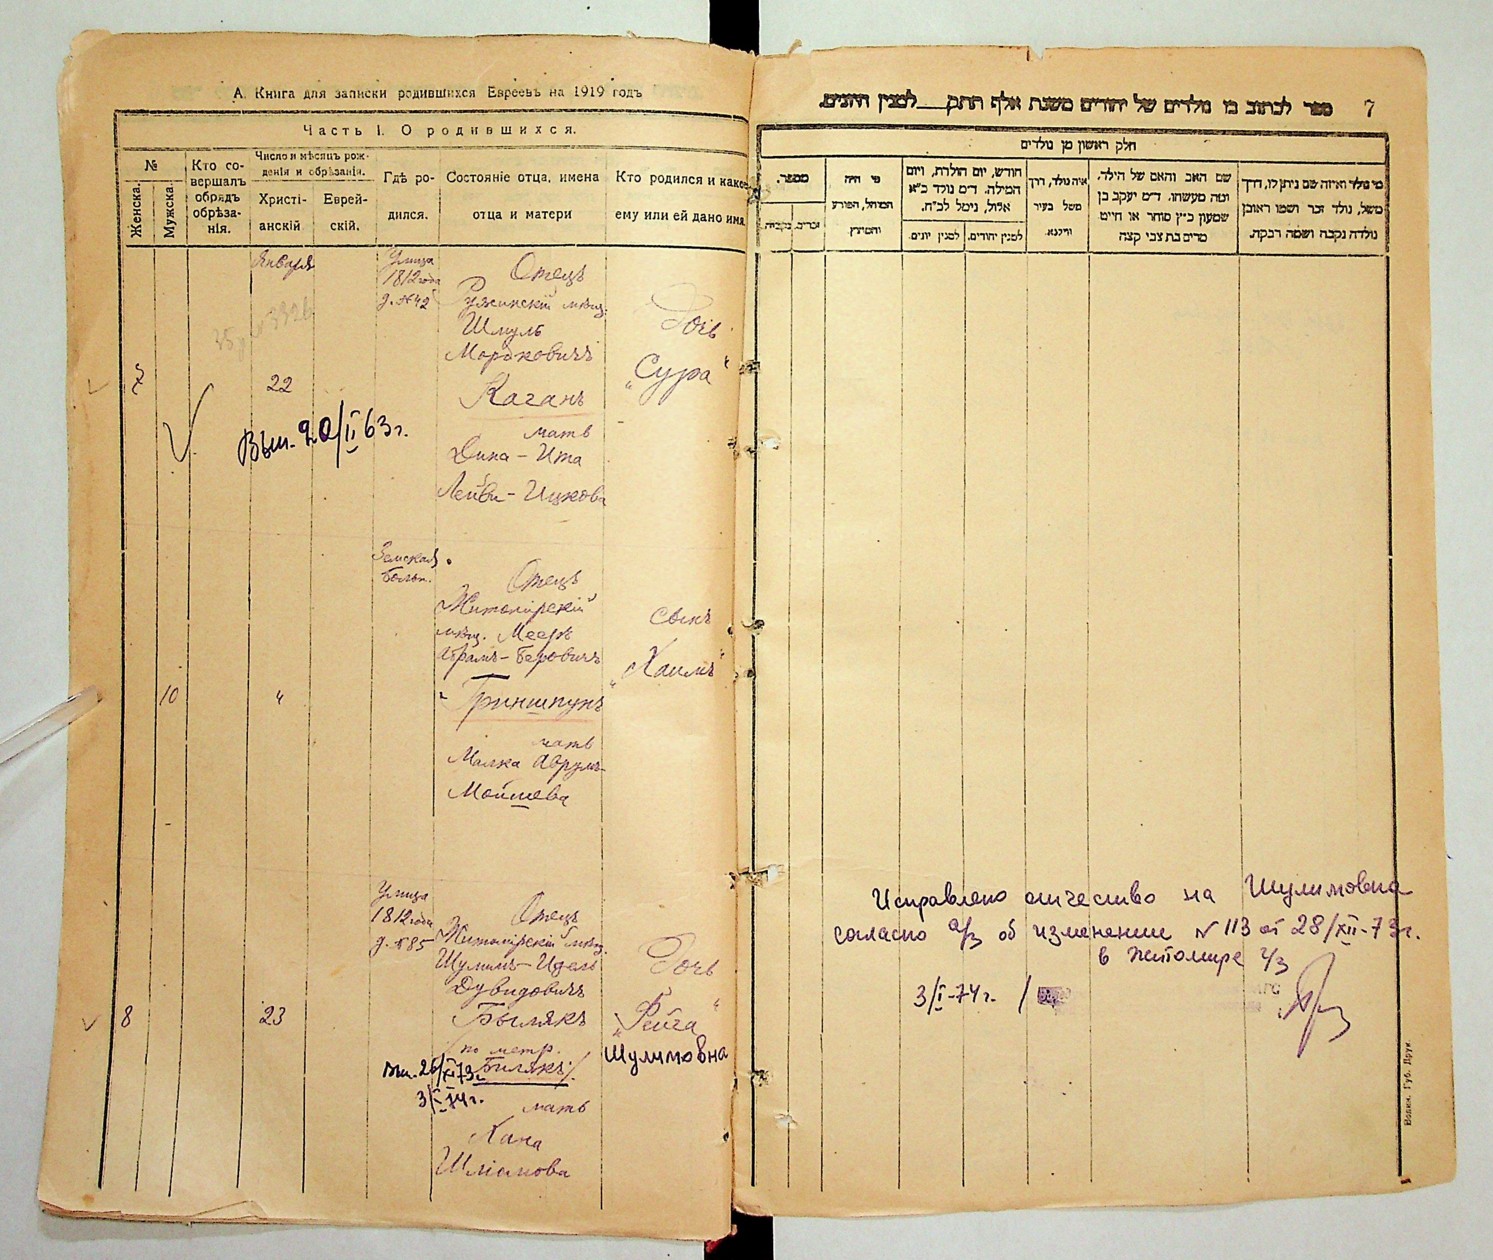 А. Книга для записки родившихся Евреевъ на 1919 годъ
Часть I. О родившихся.
№
Женска.
Мужска.
Кто со-
вершалъ
обрядъ
обрѣза-
нія.
Число и мѣсяцъ рож-
денія и обрѣзанія.
Христі-
анскій
Еврей-
скій.
Гдѣ ро-
дился.
Состояніе отца, имена
отца и матери
Кто родился и какое
ему или ей дано имя.
Января
Улица
1812 года
д. № 42
Отецъ
Ружинскій мѣщ.
Шмуль
Мордковичъ
Каганъ
мать
Дина-Ита
Лейви-Ицкова
Дочь
"Сура"
7
22
Вып. 20/II 63 г.
Земская
Больн.
Отецъ
Житомірскій
мѣщ. Мееръ
Абрамъ-Беровичъ
Гриншпунъ
мать
Малка Аврумъ-
Мойшева
сынъ
"Хаимъ"
10
"
Улица
1812 года
д. № 85
Отецъ
Житомірскій мѣщ.
Шулимъ-Идель
Дувидовичъ
Былякъ
/по метр.
Билякъ/
мать
Хана
Шліомова
Дочь
"Фейга"
Шулимовна
8
23
Вып. 26/XII 73 г.
3/I-74 г.
7
חלק ראשון מן נולדים
מספר.
זכרים.
נקבות.
מי היה
המוהל, הפורע
והמוצץ.
חודש, יום הולדת, ויום
המילה. ד״מ נולד כ״א
אלול, נימול לכ״ח.
למנין יונים.
למנין יהודים.
איה נולד, דרך
משל בעיר
ווילנא.
שם האב והאם של הילד.
ומה מעשהו. ד״מ יעקב בן
שמעון כ״ץ סוחר או חייט
מרים בת צבי קצב
מי נולד ואיזה שם ניתן לו, דרך
משל, נולד זכר ושמו ראובן
נולדה נקבה ושמה רבקה.
Исправлено отчество на Шулимовна
согласно а/з об изменении № 113 от 28/XII-73 г.
в Житомире
3/I-74 г.
Волын. Губ. Друк.